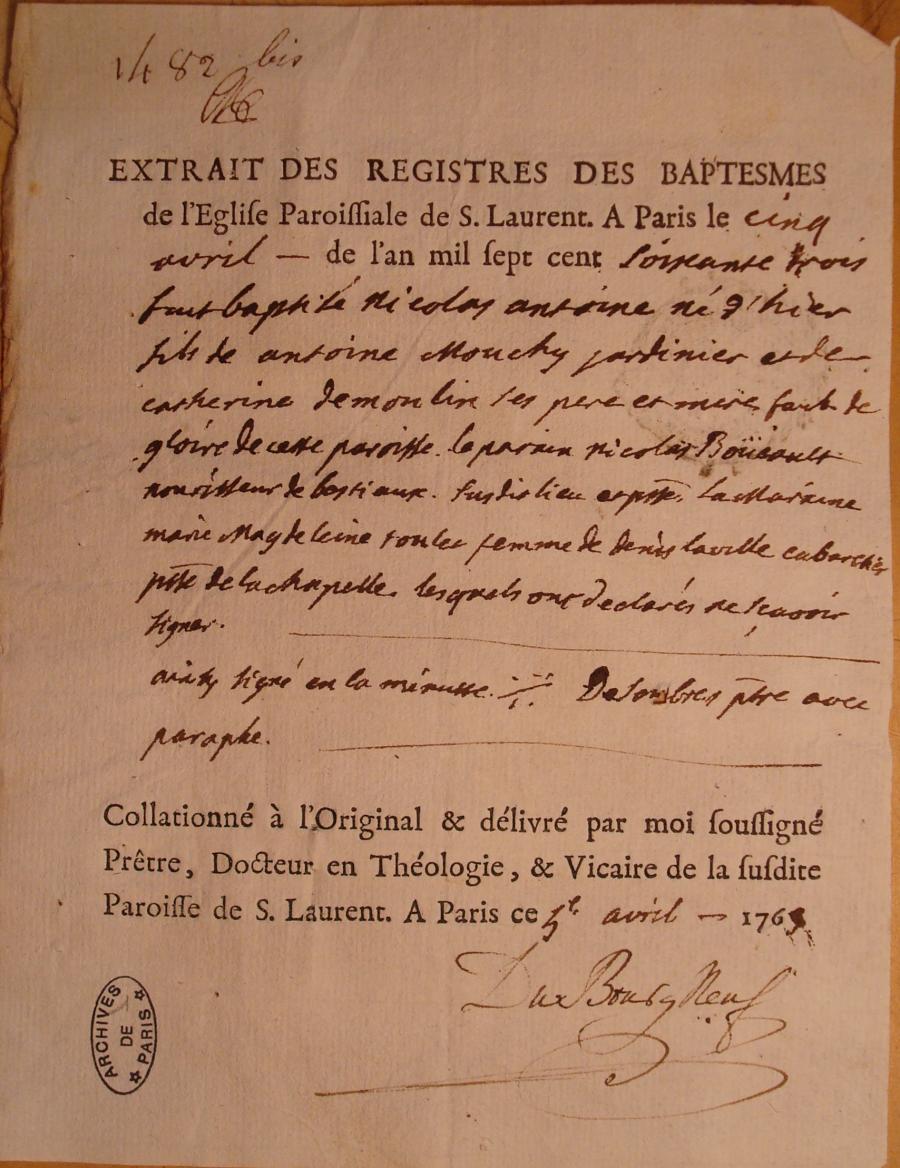 1482 bis
EXTRAIT DES REGISTRES DES BAPTESMES
de l'Egliſe Paroiſſiale de S. Laurent. A Paris le cinq
avril — de l'an mil ſept cent soixante trois
fut baptisé nicolas antoine né d'hier
fils de antoine Mouchy jardinier et de
catherine demoulin ses pere et mere faub de
gloire de cette paroisse. le parain nicolas Boücault
nourisseur de bestiaux. susdis lieu et psse, la Maraine
marie Magdeleine toulet femme de denis laville cabaretier
psse de la chapelle. lesquels ont declarés ne sçavoir
signer.
ainsy signé en la minutte. Desombres ptre avec
paraphe.
Collationné à l'Original & délivré par moi ſouſſigné
Prêtre, Docteur en Théologie, & Vicaire de la ſuſdite
Paroiſſe de S. Laurent. A Paris ce 5e avril — 1763
DuxBourgNeuf
ARCHIVES DE PARIS